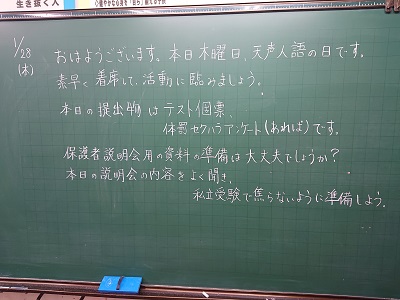 生き抜く人
1/28
(木)
おはようございます。本日木曜日、天声人語の日です。
素早く着席して、活動に臨みましょう。
本日の提出物はテスト個票、
体罰セクハラアンケート(あれば)です。
保護者説明会用の資料の準備は大丈夫でしょうか?
本日の説明会の内容をよく聞き、
私立受験で焦らないように準備しよう。